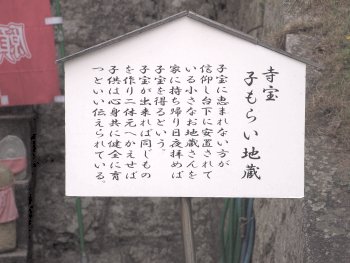 寺宝
子もらい地蔵
子宝に恵まれない方が
信仰し台下に安置されて
いる小さなお地蔵さんを
家に持ち帰り日夜拝めば
子宝を得るという。
子宝が出来れば同じもの
を作り二体元へかえせば
子供は心身共に健全に育
つといい伝えられている。